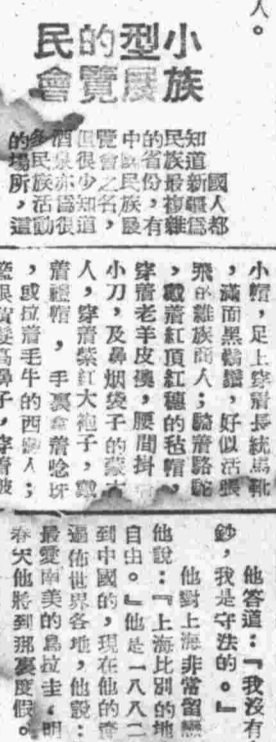 人。
小型的民
族展覽會
國人都
知道新疆爲
民族最複雜
的省份，有
中國民族展
覽會之名，
但很少知道
酒泉亦爲很
多民族活動
的場所，這
小帽，足上穿着長統馬靴
，滿面黑鬍鬚，好似活張
飛的雜族商人；騎着駱駝
，戴着紅頂紅穗的毡帽，
穿着老羊皮襖，腰間掛
小刀，及鼻烟袋子的蒙古
人，穿着紫紅大袍子，戴
着禮帽，手裏拿着唸珠
，或拉着毛牛的西藏人；
藍眼黃髮高鼻子，穿着破
他答道：『我沒有
鈔，我是守法的。』
他對上海非常留戀
他說：『上海比別的地
自由。』他是一八八二
到中國的，現在他的
遍佈世界各地，他說：
最愛南美的烏拉圭，明
春天他將到那裏度假。